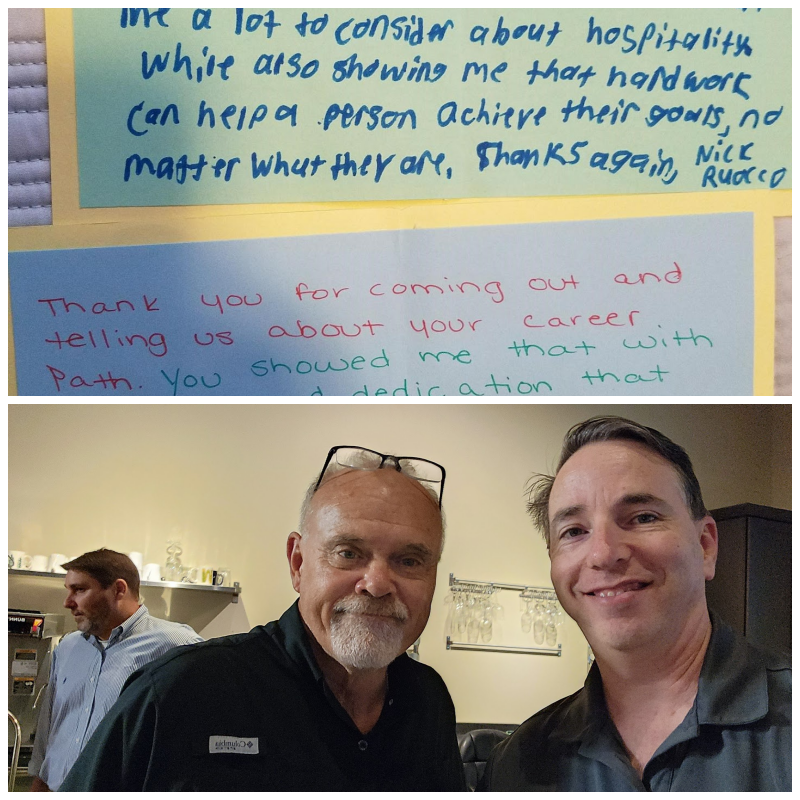 me a lot to consider about hospitality
while also showing me that hard work
can help a person achieve their goals, no
matter what they are. Thanks again, Nick
Ruocco
Thank you for coming out and
telling us about your career
Path. You showed me that with
dedication that
Columbia
BUNN